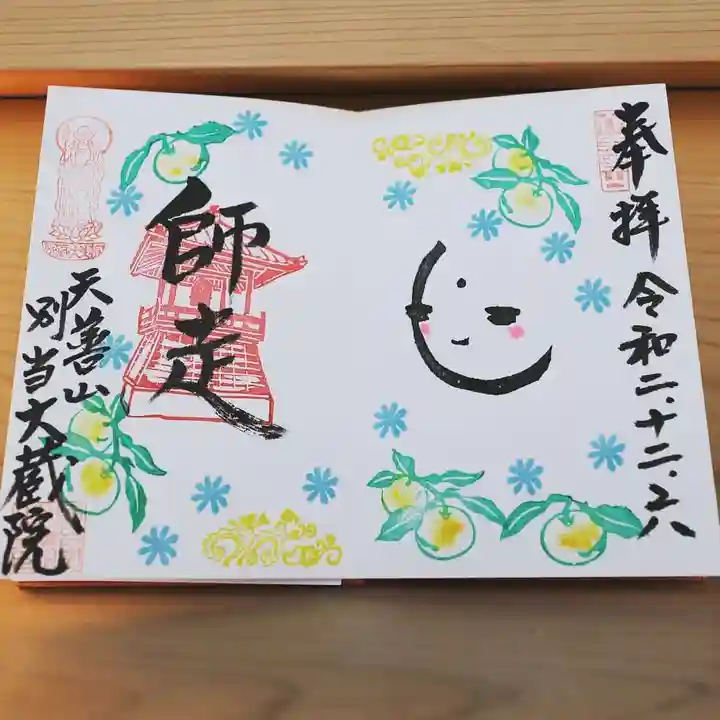 奉拝
令和二.十二.二八
師走
天善山
別当大蔵院